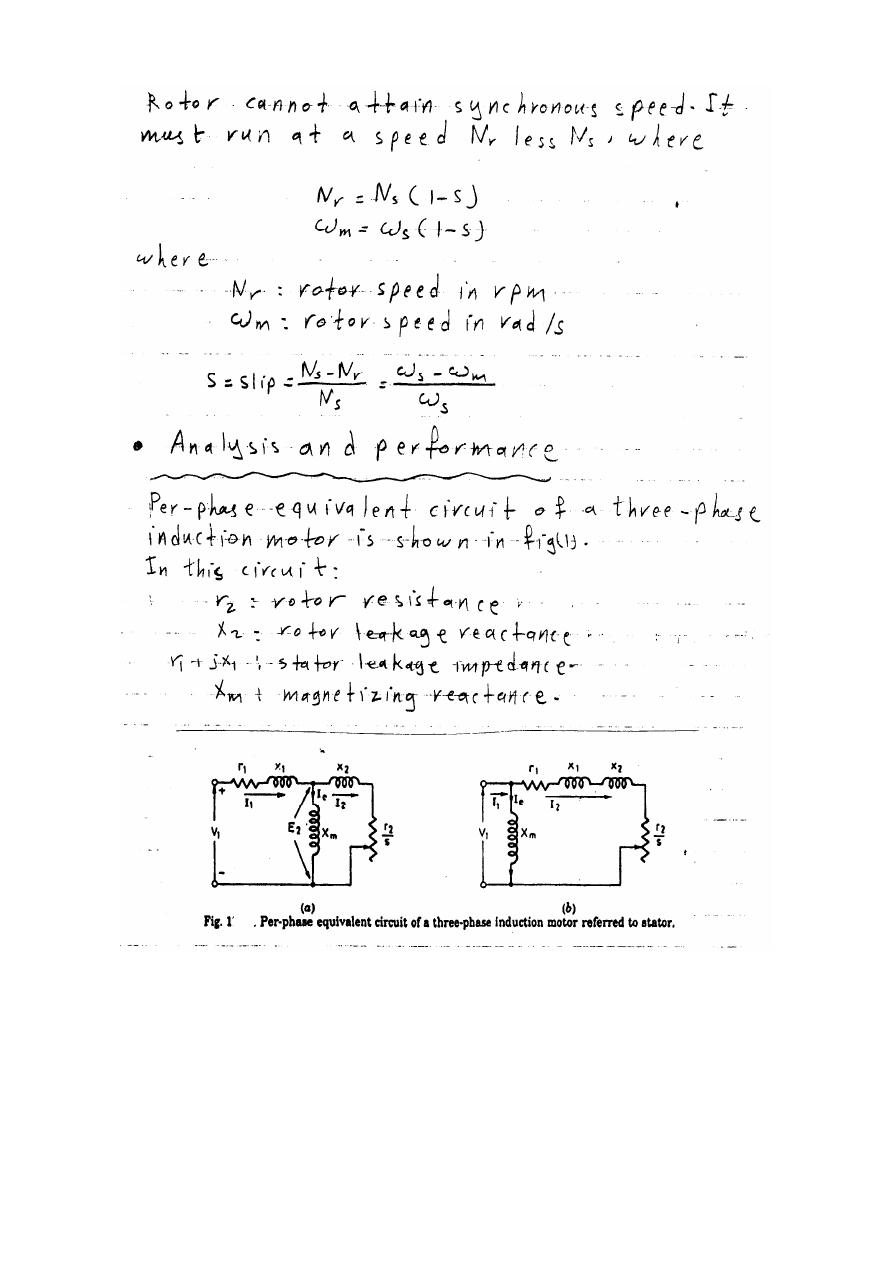 Rotor cannot attain synchronous speed. It
must run at a speed Nr less Ns, where
Nr = Ns (1-S)
ωm = ωs (1-S)
where
Nr : rotor speed in rpm
ωm : rotor speed in rad/s
S = slip = (Ns - Nr)/Ns = (ωs - ωm)/ωs
• Analysis and performance
Per-phase equivalent circuit of a three-phase
induction motor is shown in fig(1).
In this circuit:
r2 : rotor resistance
X2 : rotor leakage reactance
r1 + jX1 : stator leakage impedance
Xm : magnetizing reactance.
r1 X1 X2
+ I1 Ie I2
V1 E2 Xm r2/s
-
(a)
r1 X1 X2
I1 Ie I2
V1 Xm r2/s
(b)
Fig. 1 . Per-phase equivalent circuit of a three-phase induction motor referred to stator.